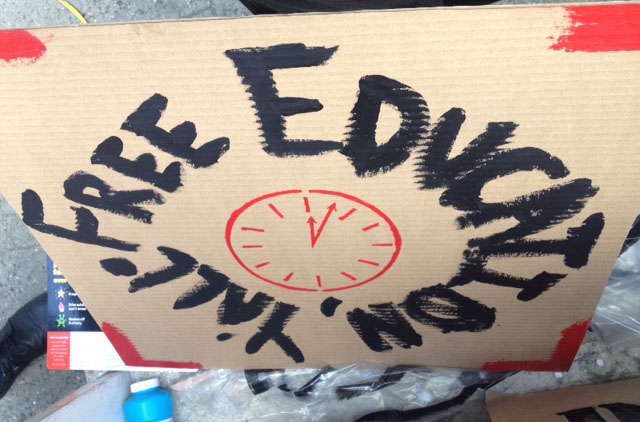 FREE EDUCATION, Y'ALL!